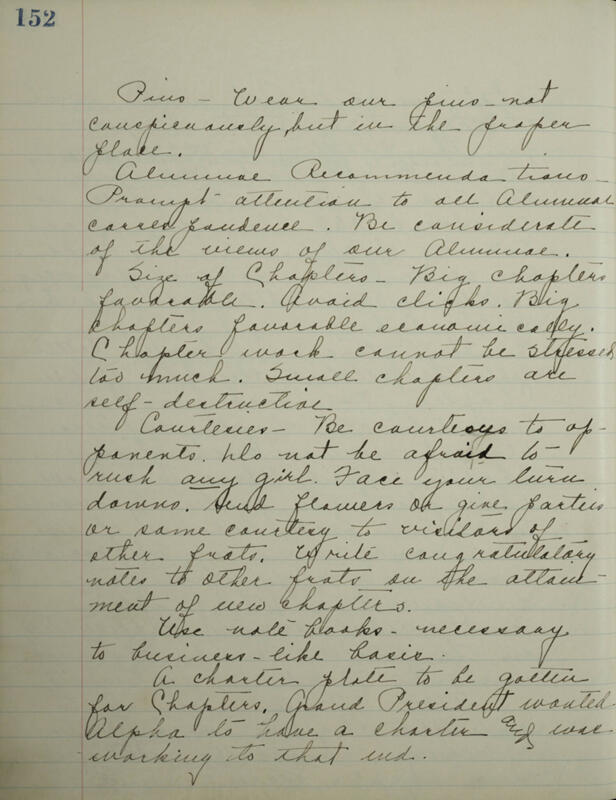 152
Pins - Wear our pins - not
conspicuously, but in the proper
place.
Alumnae Recommendations -
Prompt attention to all Alumnae
correspondence. Be considerate
of the views of our Alumnae.
Size of Chapters - Big chapters
favorable. Avoid clicks. Big
chapters favorable economically.
Chapter work cannot be stressed
too much. Small chapters are
self-destructive
Courtesies - Be courteous to op-
ponents. Do not be afraid to
rush any girl. Face your turn
downs. Send flowers or give parties
or some courtesy to visitors of
other frats. Write congratulatory
notes to other frats on the attain-
ment of new chapters.
Use note books - necessary
to business-like basis.
A charter plate to be gotten
for Chapters. Grand President wanted
Alpha to have a charter and was
working to that end.